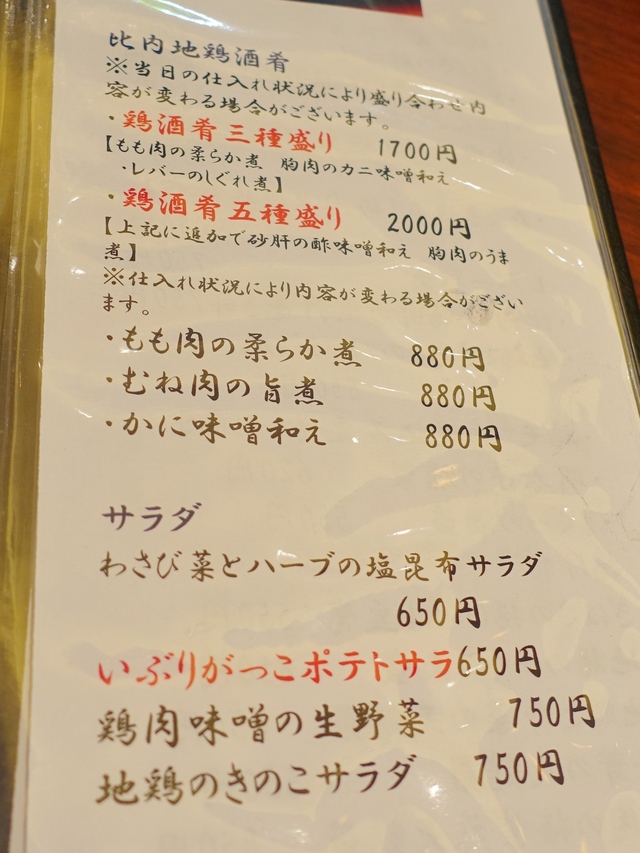 比内地鶏酒肴
※当日の仕入れ状況により盛り合わせ内
容が変わる場合がございます。
・鶏酒肴三種盛り 1700円
【もも肉の柔らか煮 胸肉のカニ味噌和え
・レバーのしぐれ煮】
・鶏酒肴五種盛り 2000円
【上記に追加で砂肝の酢味噌和え 胸肉のうま
煮】
※仕入れ状況により内容が変わる場合がござい
ます。
・もも肉の柔らか煮 880円
・むね肉の旨煮 880円
・かに味噌和え 880円
サラダ
わさび菜とハーブの塩昆布サラダ
650円
いぶりがっこポテトサラ650円
鶏肉味噌の生野菜 750円
地鶏のきのこサラダ 750円